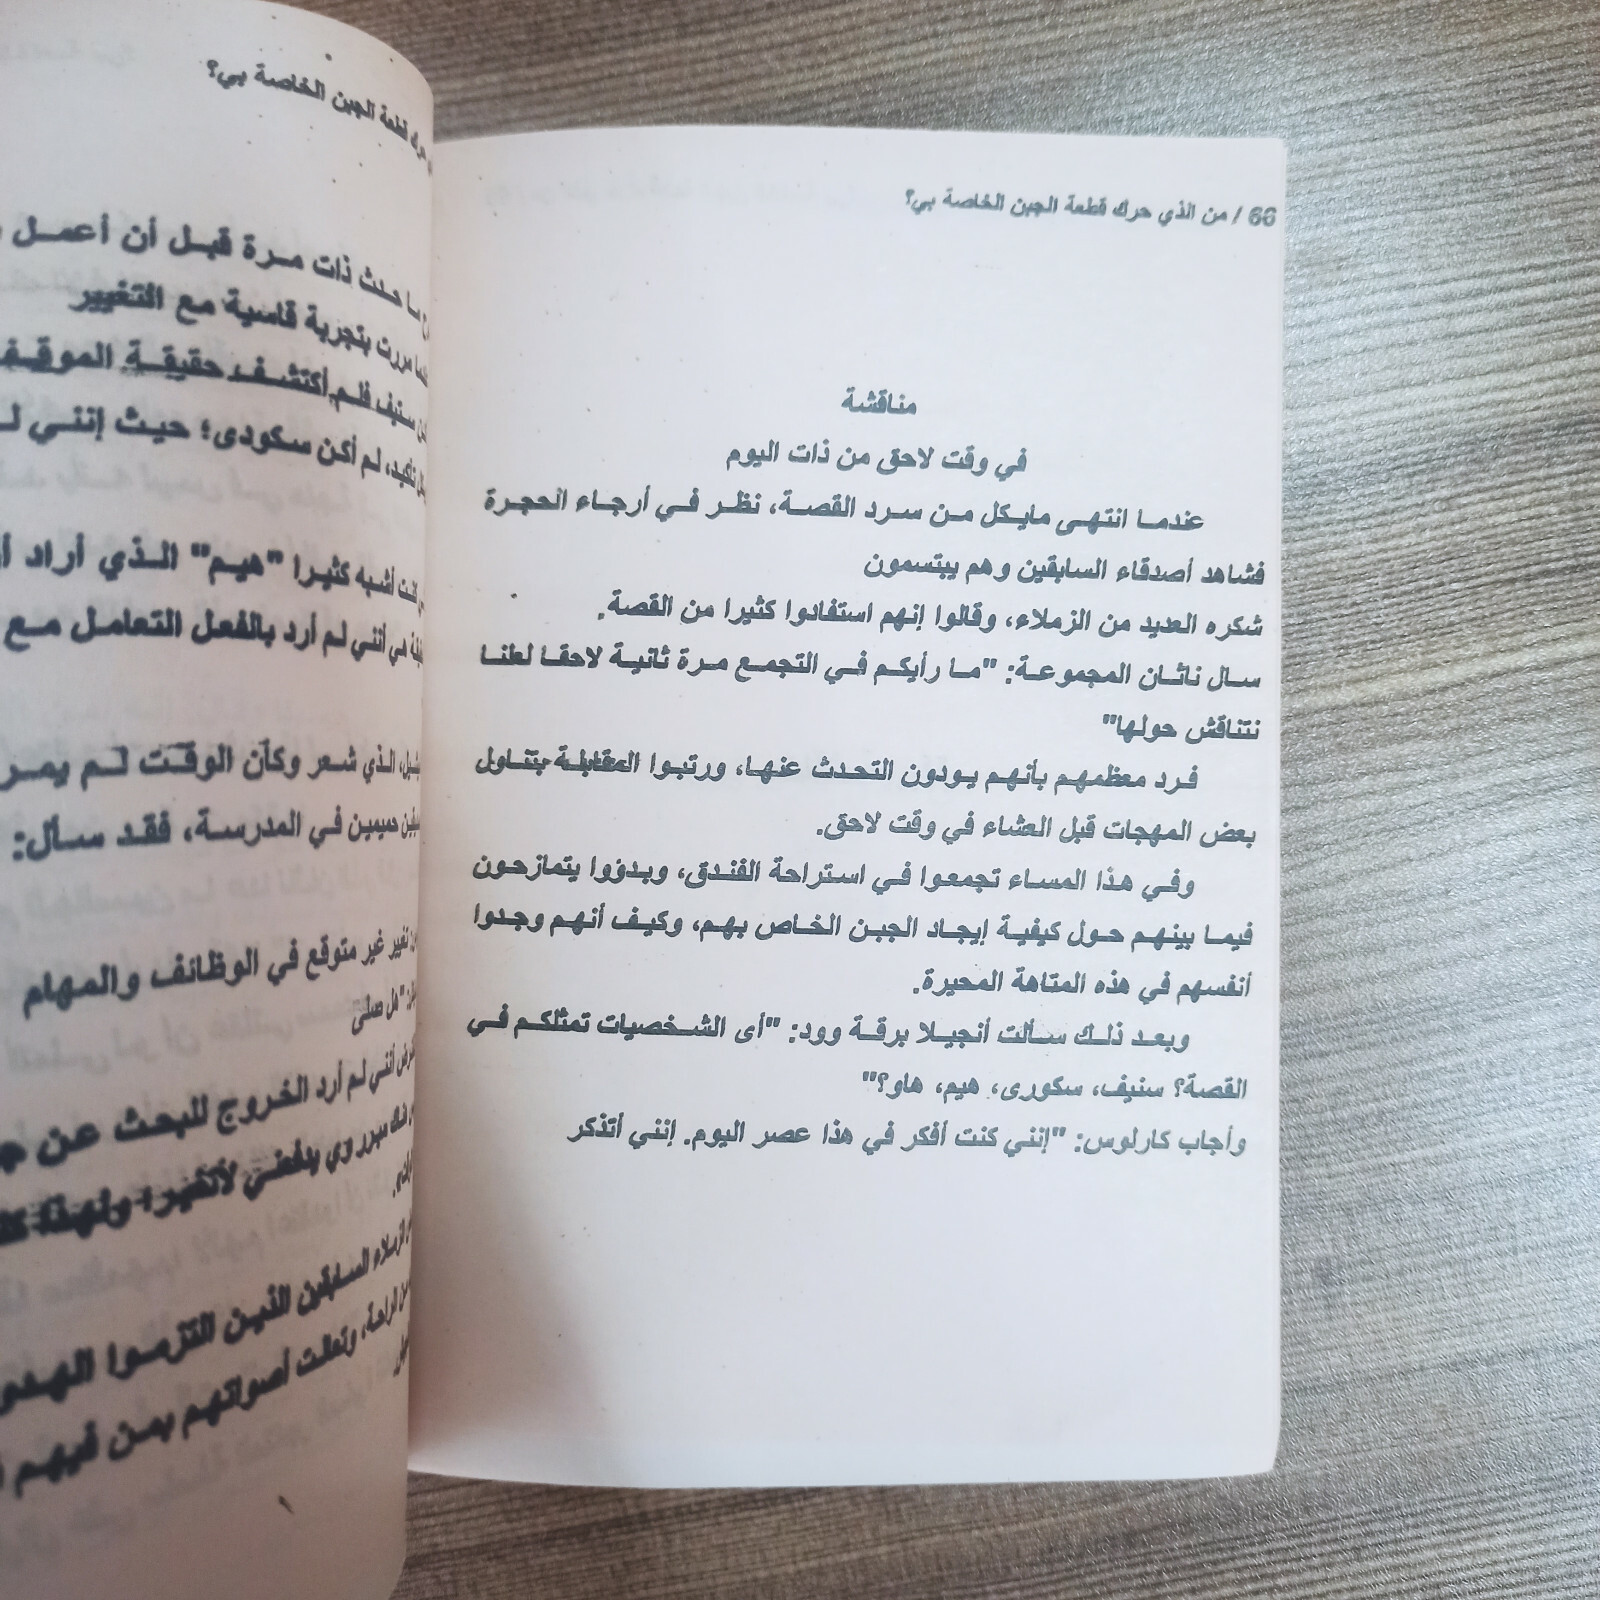 66 / من الذي حرك قطعة الجبن الخاصة بي؟
مناقشة
في وقت لاحق من ذات اليوم
عندما انتهى مايكل من سرد القصة، نظر في أرجاء الحجرة
فشاهد أصدقاء السابقين وهم يبتسمون
شكره العديد من الزملاء، وقالوا إنهم استفادوا كثيرا من القصة.
سال ناثان المجموعة: "ما رأيكم في التجمع مرة ثانية لاحقا لعلنا
نتناقش حولها"
فرد معظمهم بأنهم يودون التحدث عنها، ورتبوا المقابلة بتناول
بعض المهجات قبل العشاء في وقت لاحق.
وفي هذا المساء تجمعوا في استراحة الفندق، وبدؤوا يتمازحون
فيما بينهم حول كيفية إيجاد الجبن الخاص بهم، وكيف أنهم وجدوا
أنفسهم في هذه المتاهة المحيرة.
وبعد ذلك سألت أنجيلا برقة وود: "أى الشخصيات تمثلكم في
القصة؟ سنيف، سكورى، هيم، هاو؟"
وأجاب كارلوس: "إنني كنت أفكر في هذا عصر اليوم. إنني أتذكر
حرك قطعة الجبن الخاصة بي؟
ما حدث ذات مرة قبل أن أعمل
مررت بتجربة قاسية مع التغيير
سنيف فلم أكتشف حقيقة الموقف
لم أكن سكودى؛ حيث إنني
كنت أشبه كثيرا "هيم" الذي أراد
هي أنني لم أرد بالفعل التعامل مع
الذي شعر وكأن الوقت لم يمر
حميمين في المدرسة، فقد سأل:
تغيير غير متوقع في الوظائف والمهام
أنني لم أرد الخروج للبحث عن
الزملاء السابقين الذين التزموا
وتعالت أصواتهم بمن فيهم